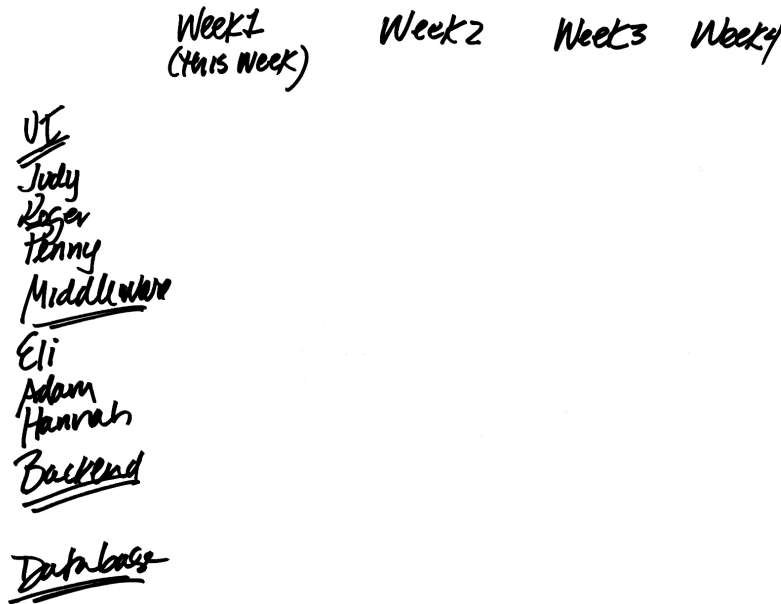 Week1 Week2 Week3 Week4
(this week)
UI
Judy
Roger
Penny
Middleware
Eli
Adam
Hannah
Backend
Database